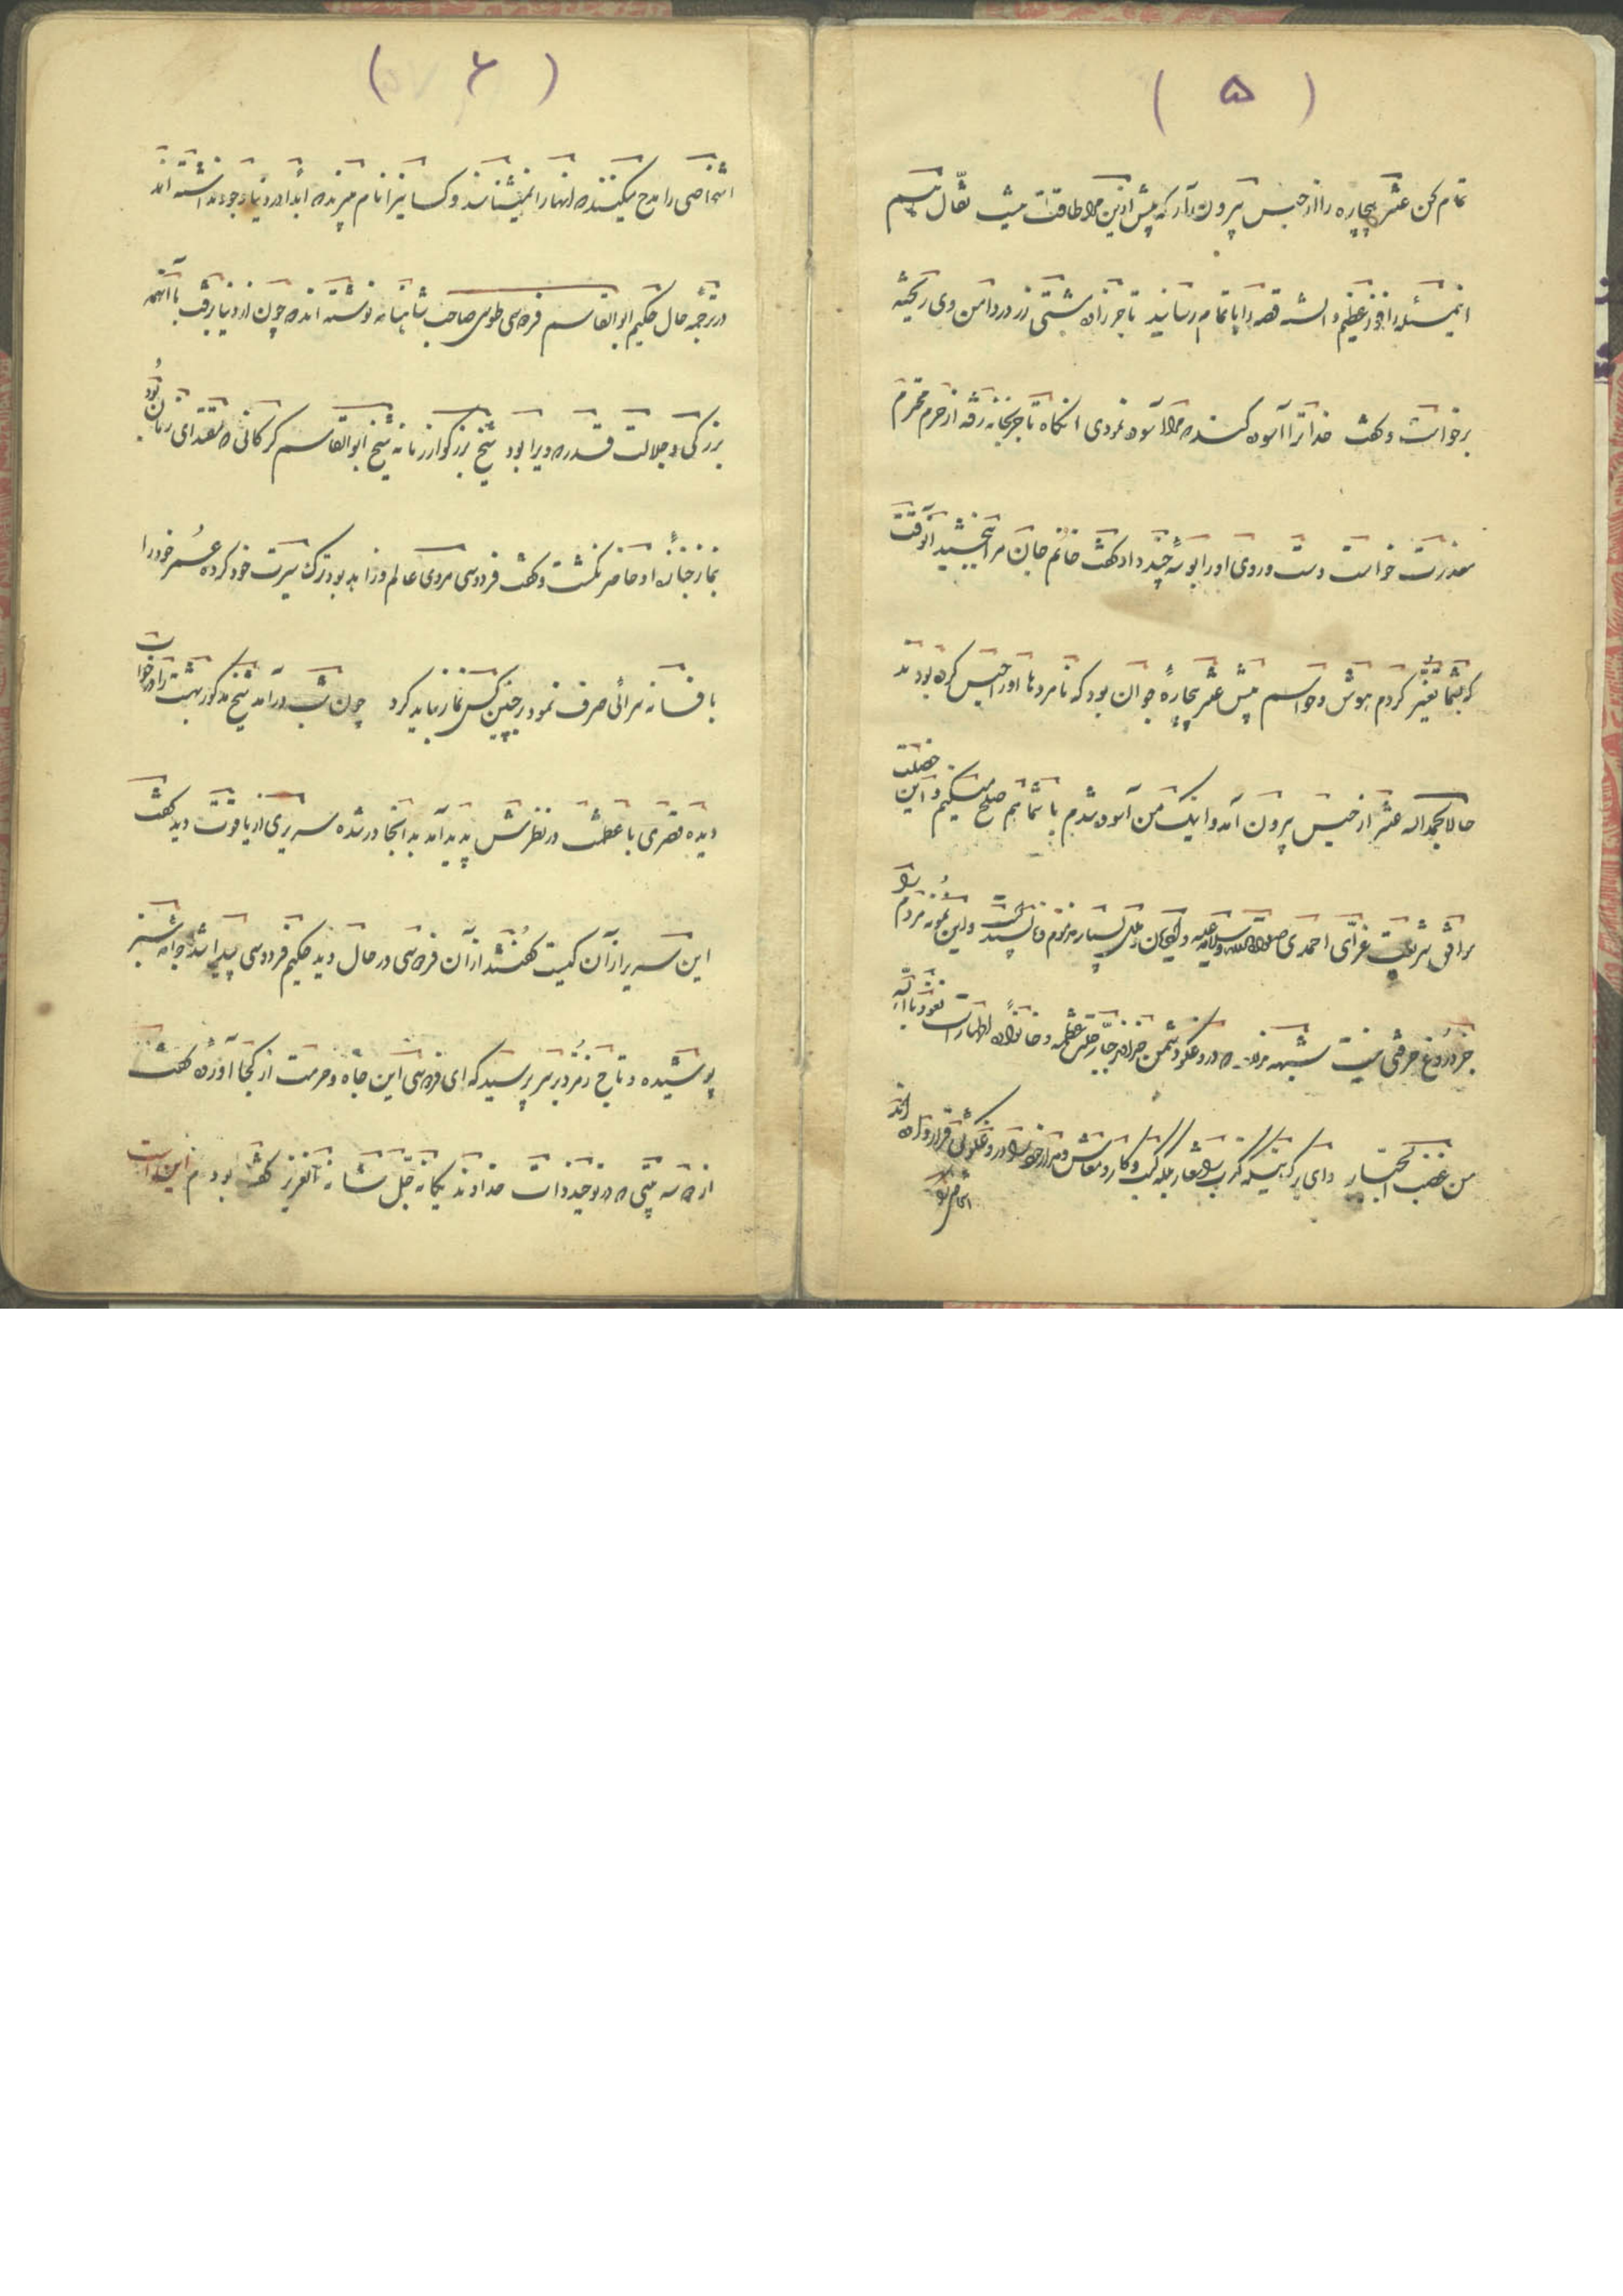 ( ۵ )
تمام کن عنتر بیچاره را از حبس بیرون بیار که بیش ازین مرا طاقت نیست نقّال هم
اینمسئله را فوز عظیم دانسته قصه را باتمام رسانید تاجرزاده مشتی زر در دامن وی ریخته
برخواست و گفت خدا ترا آسوده کند که مرا آسوده نمودی انگاه تاجر بخانه رفته از حرم محترم
معذرت خواست دست و روی او را بوسهٔ چند داد گفت خانم جان مرا ببخشید آنوقت
که بشما تغیّر کردم هوش و حواسم پیش عنتر بیچارهٔ جوان بود که نامردها او را حبس کرده بودند
حالا بحمداله عنتر از حبس بیرون آمد و اینک من آسوده شدم با شما هم صلح میکنیم و این خصلت
برافق شریعت غرّای احمدی صلوات الله و سلامه علیه و بسیار مذموم و ناپسند است و این نمونه مردم را
جز دروغ حرفی نیست شبهه که دروغگو دشمن خداوند جبّار جلّت عظمته و خانوادهٔ اطهار است نعوذ بالله
من غضب الجبّار وای بر که کسب و کار و معاش خود را در دروغگوئی قرار داده اند
( ۶ )
اشخاصی را مدح میکنند که انها را نمیشناسند و کسانیرا نام میبرند که ابدا در دنیا وجود نداشته اند
در ترجمهٔ حال حکیم ابوالقاسم فردوسی طوسی صاحب شاهنامه نوشته اند که چون از دنیا برفت با آنهمه
بزرگی و جلالت قدر که ویرا بود شیخ بزرگوار زمانه شیخ ابوالقاسم گرکانی که مقتدای زمان بود
بنماز جنازهٔ او حاضر نگشت و گفت فردوسی مردی عالم و زاهد بود ترک سیرت خود کرده عمر خود را
بافسانه سرائی صرف نمود بر چنین کس نماز نباید کرد چون شب درآمد شیخ مذکور بهشت را در خواب
دیده قصری با عظمت در نظرش پدید آمد بدانجا در شده سریری از یاقوت دید گفت
این سریر از آن کیست گفتند از آن فردوسی در حال دید حکیم فردوسی پیدا شد جامه سبز
پوشیده و تاج زمرد بر سر پرسید که ای فردوسی این جاه و حرمت از کجا آوردهٔ گفت
از دو سه بیتی که در توحید ذات خداوند یگانه جلّ شانه العزیز گفته بودم این است